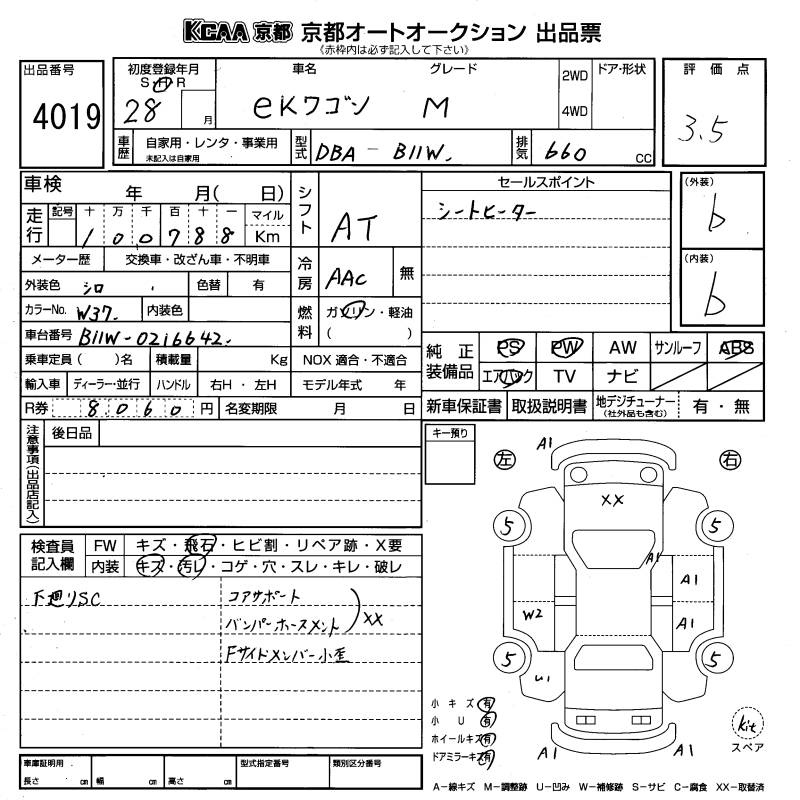 KCAA 京都 京都オートオークション 出品票
《赤枠内は必ず記入して下さい》
出品番号
4019
初度登録年月
S H R
28 月
車名 グレード
eKワゴン M
2WD
4WD
ドア・形状
評価点
3.5
車歴
自家用・レンタ・事業用
未記入は自家用
型式
DBA - B11W.
排気
660 CC
車検 年 月( 日)
走行
記号 十 万 千 百 十 一 マイル
1 0 0 7 8 8 Km
メーター歴 交換車・改ざん車・不明車
外装色 シロ 色替 有
カラーNo. W37. 内装色
車台番号 B11W-0216642.
乗車定員( )名 積載量 Kg
輸入車 ディーラー・並行 ハンドル 右H・左H
R券 8060円 名変期限 月 日
シフト AT
冷房 AAC 無
燃料 ガソリン・軽油
( )
NOX 適合・不適合
モデル年式 年
セールスポイント
シートヒーター
(外装)
b
(内装)
b
純正装備品
PS PW AW サンルーフ ABS
エアバック TV ナビ
新車保証書 取扱説明書 地デジチューナー
(社外品も含む)
有・無
注意事項(出品店記入)
後日品
キー預り
検査員記入欄
FW キズ・飛石・ヒビ割・リペア跡・X要
内装 キズ・汚レ・コゲ・穴・スレ・キレ・破レ
下廻りSC
コアサポート
バンパーホースメント
XX
Fサイドメンバー小歪
左 右
A1
XX
5 5
A1
A1
W2
A1
5 5
U1
A1 A1
小キズ 有
小U 有
ホイールキズ 有
ドアミラーキズ 有
kit
スペア
車庫証明用
長さ cm 幅 cm 高さ cm
型式指定番号
類別区分番号
A―線キズ M―調整跡 U―凹み W―補修跡 S―サビ C―腐食 XX―取替済